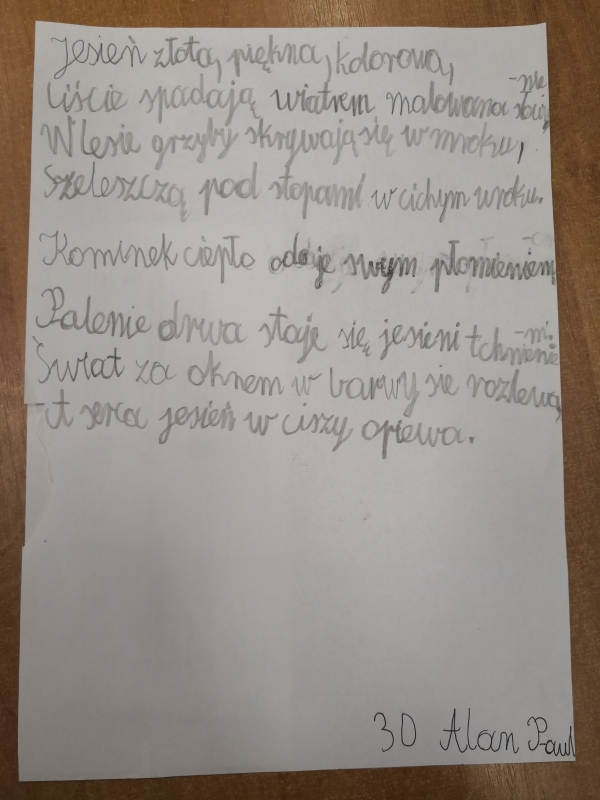 Jesień złota, piękna, kolorowa,
Liście spadają wiatrem malowana
W lesie grzyby skrywają się w mroku,
Szeleszczą pod stopami w cichym uroku.
Kominek ciepło oddaje swym płomieniem
Palenie drwa staje się jesieni tchnienie
-m.
Świat za oknem w barwy się rozlewa,
A serca jesień w ciszy opiewa.
3D Alan Paul